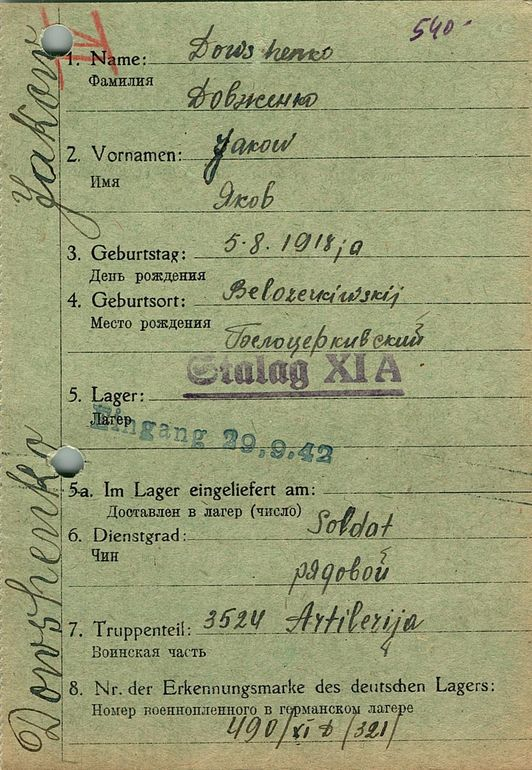 540-
IV
1. Name: Dowshenko
Фамилия
Довженко
2. Vornamen: Jakow
Имя
Яков
3. Geburtstag: 5.8.1918 ja
День рождения
4. Geburtsort: Belozerkiwskij
Место рождения
Белоцеркивский
Stalag XI A
5. Lager:
Лагер
Eingang 29.9.42
5a. Im Lager eingeliefert am:
Доставлен в лагер (число)
6. Dienstgrad: Soldat
Чин
рядовой
7. Truppenteil: 3524 Artilerija
Воинская часть
8. Nr. der Erkennungsmarke des deutschen Lagers:
Номер военнопленного в германском лагере
490/XI D/321/
Dowshenko Jakow